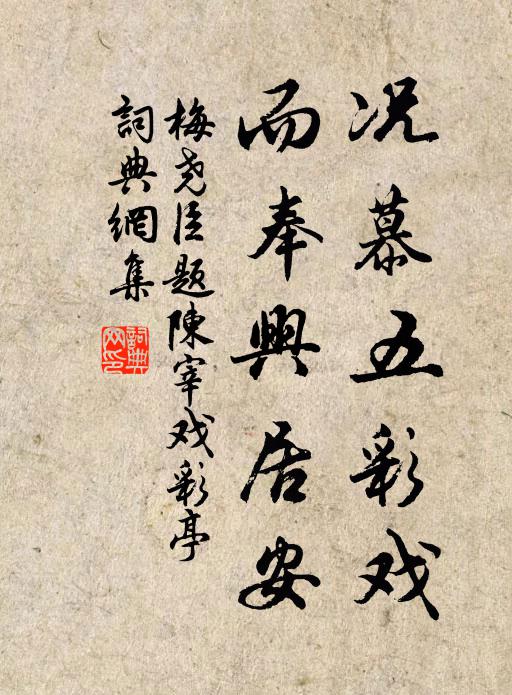 况慕五彩戏
而奉興居安
梅尧臣题陳宰戏彩亭
詞典網集
詞典网印